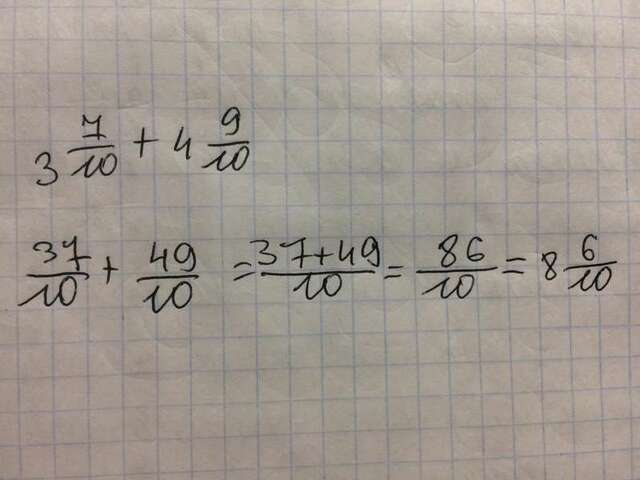 3 7/10 + 4 9/10
37/10 + 49/10 = 37+49/10 = 86/10 = 8 6/10